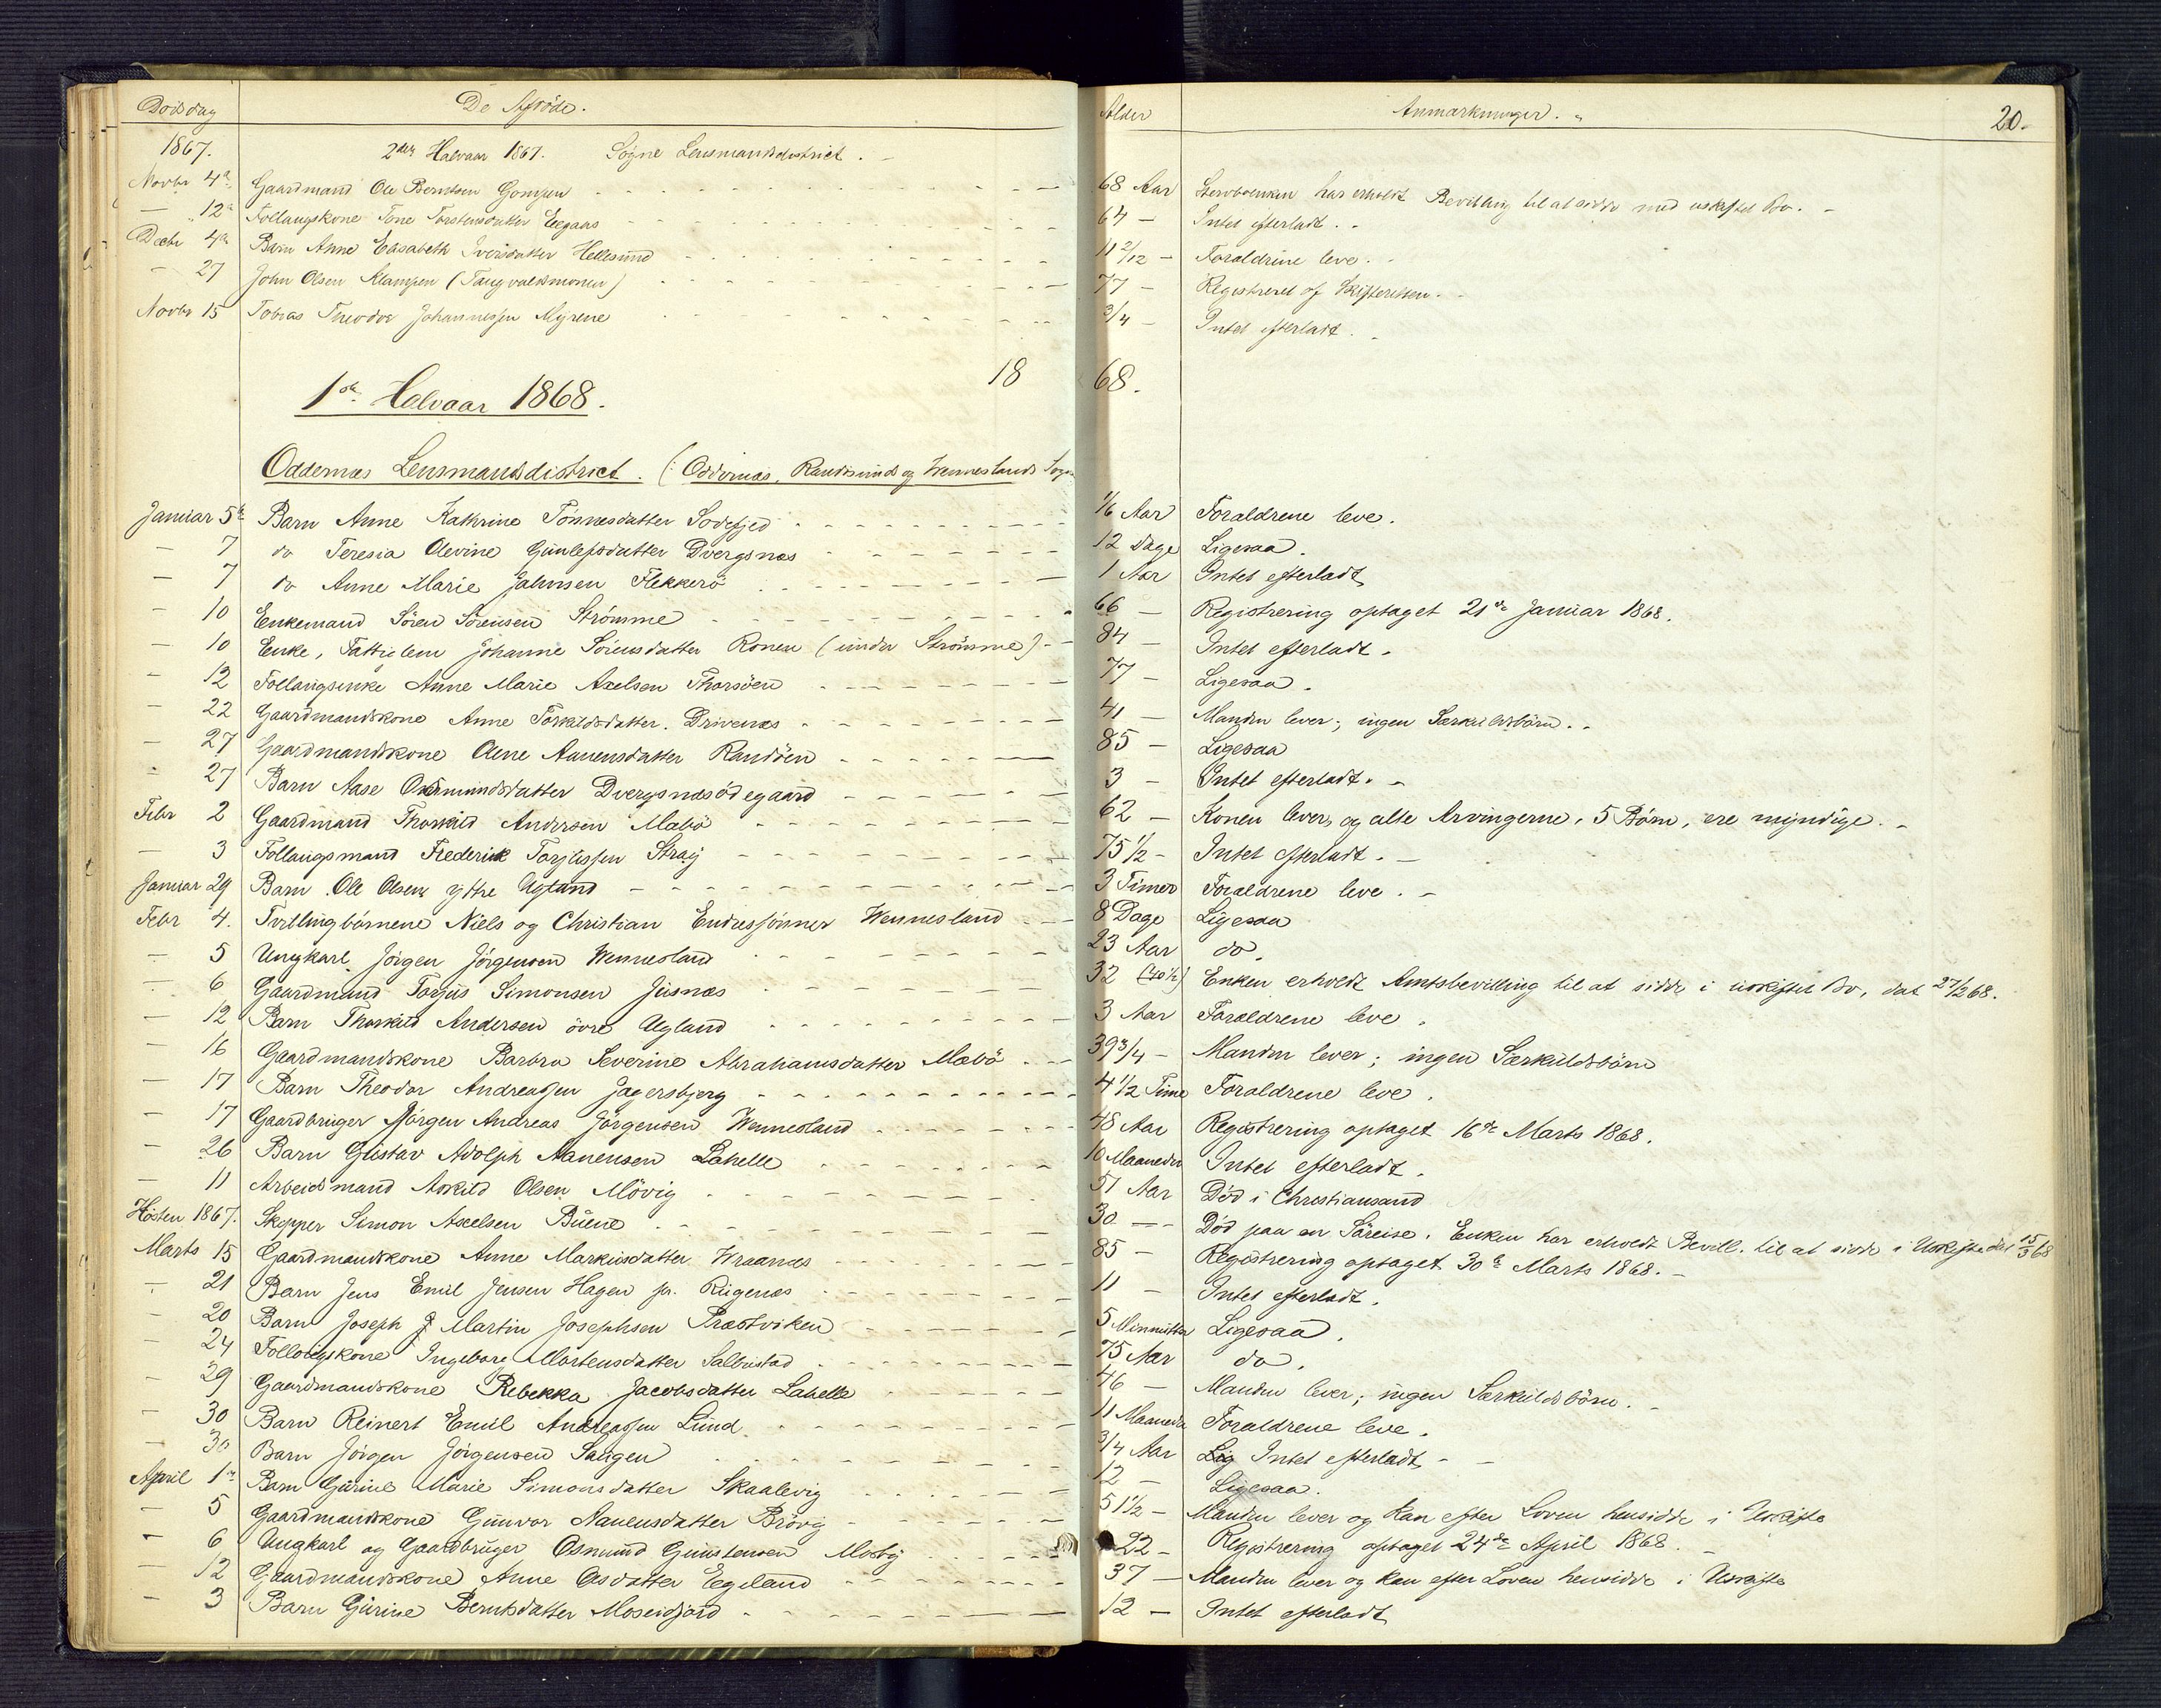 Dödsdag De Afdöde. Alder Anmærkninger. 20.
1867. 2det Halvaar 1867. Søgne Lensmandsdistrict.
Novbr 4de Gaardmand Ole Berntsen 68 Aar har erholdt Bevilling til at sidde med uskiftet Bo.
— 12te Follaugskone Tone Torstensdatter Eegaas 64 — Intet efterladt.
Decbr 4de Barn Anne Elisabeth Iversdatter Hellesund 11 2/12 — Forældrene leve.
— 27 John Olsen Klampen (Tangvaldmonen) 77 — Registreret af Skifteretten.
Novbr 15 Tobias Theodor Johannessen Myrene 3/4 — Intet efterladt.
1868.
1ste Halvaar 1868.
Oddernæs Lensmandsdistrict. (: Oddernæs, Randøsunds og Wenneslands Sogn
Januar 5te Barn Anne Kathrine Tönnesdatter Sodefjed 1/6 Aar Forældrene leve.
— 7 do Teresia Olevine Gunlefsdatter Dvergsnæs 12 Dage Ligesaa.
— 7 do Anne Marie Jahnsen Flekkerö 1 Aar Intet efterladt
— 10 Enkemand Sören Sörensen Strömme 66 — Registrering optaget 21de Januar 1868.
— 10 Enke, Fattiglem Johanne Sörensdatter Ronen (under Strömme) 84 — Intet efterladt.
— 12 Follaugsenke Anne Marie Axelsen Tharsöen 77 — Ligesaa.
— 22 Gaardmandskone Anne Torkildsdatter Drivenæs 41 — Manden lever; ingen Særkuldsbörn.
— 27 Gaardmandskone Anne Aanensdatter Randöen 85 — Ligesaa
— 27 Barn Aase Osmundsdatter Dvergsnæsödegaard 3 — Intet efterladt.
Febr 2 Gaardmand Thorkild Andersen Mæbö 62 — Konen lever, og alle Arvingerne, 5 Börn, ere myndige.
— 3 Follaugsmand Frederik Torjussen Stray 75 1/2 — Intet efterladt.
Januar 29 Barn Ole Olsen ytre Ugland 3 Timer Forældrene leve.
Febr 4. Tvillingbörnene Niels og Christian Endresönner Wennesland 8 Dage Ligesaa
— 5 Ungkarl Jörgen Jörgensen Wennesland 23 Aar do.
— 6 Gaardmand Torjus Simonsen Jusnæs 32 (40 1/2) Enken erholdt Amtsbevilling til at sidde i uskiftet Bo, dat 27/2 68.
— 12 Barn Thorkild Andersen övre Ugland 3 Aar Forældrene leve.
— 16 Gaardmandskone Barbra Severine Abrahamsdatter Mæbö 39 3/4 — Manden lever; ingen Særkuldsbörn
— 17 Barn Theodor Andreassen Jægersbjerg 4 1/2 Time Forældrene leve.
— 17 Gaardbruger Jörgen Andreas Jörgensen Wennesland 48 Aar Registrering optaget 16de Marts 1868.
— 26 Barn Gustav Adolph Aanensen Lahelle 10 Maaneder Intet efterladt.
— 11 Arbeidsmand Askild Olsen Mövig 51 Aar Död i Christiansand
Hösten 1867. Skipper Simon Axelsen Buene 30 — Död paa en Söreise. Enken har erholdt Bevill. til at sidde i Uskifte dat 15/5 68
Marts 15 Gaardmandskone Anne Markusdatter Wraanæs 85 — Registrering optaget 30te Marts 1868.
— 21 Barn Jens Emil Jensen Hagen pr. Rugenæs 11 — Intet efterladt.
— 20 Barn Joseph Martin Josephsen Præstviken 5 Minutter Ligesaa.
— 24 Follaugskone Ingeborg Mortensdatter Salbustad 75 Aar do.
— 29 Gaardmandskone Rebekka Jacobsdatter Lahelle 46 — Manden lever; ingen Særkuldsbörn.
— 30 Barn Reinert Emil Andreassen Lund 11 Maaneder Forældrene leve.
— 30 Barn Jörgen Jörgensen Saugen 3/4 Aar Lig Intet efterladt
April 1ste Barn Gurine Marie Simonsdatter Skaalevig 12 — Ligesaa.
— 5 Gaardmandskone Gunvor Aanensdatter Brövig 51 1/2 — Manden lever og kan efter Loven hensidde i Uskifte
— 6 Ungkarl og Gaardbruger Osmund Gunstensen Mosby 22 — Registrering optaget 24de April 1868.
— 12 Gaardmandskone Anne Osdatter Eegeland 37 — Manden lever og kan efter Loven hensidde i Uskifte
— 3 Barn Gurine Berntsdatter Moseidjord 12 — Intet efterladt